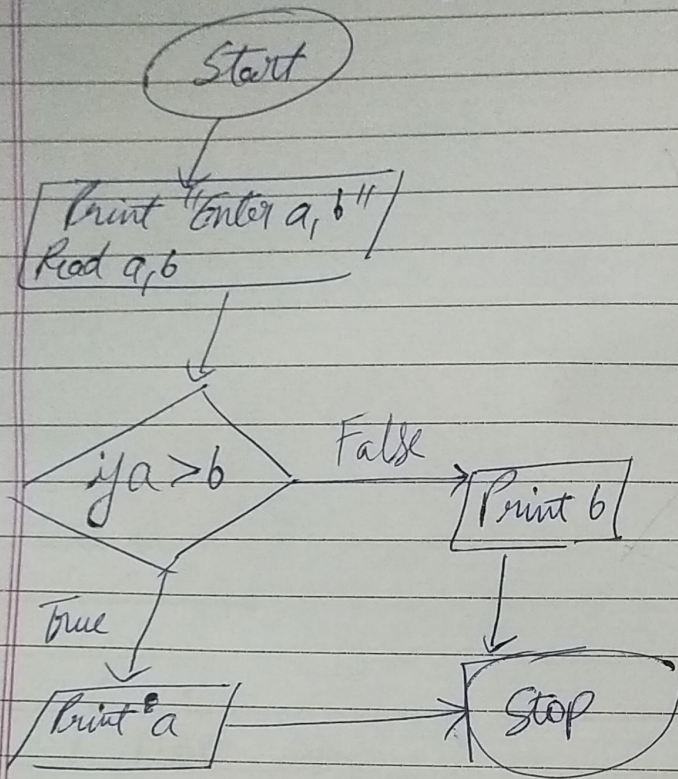 Start
Print "Enter a, b"
Read a,b
if a > b
False
Print b
True
Print a
Stop